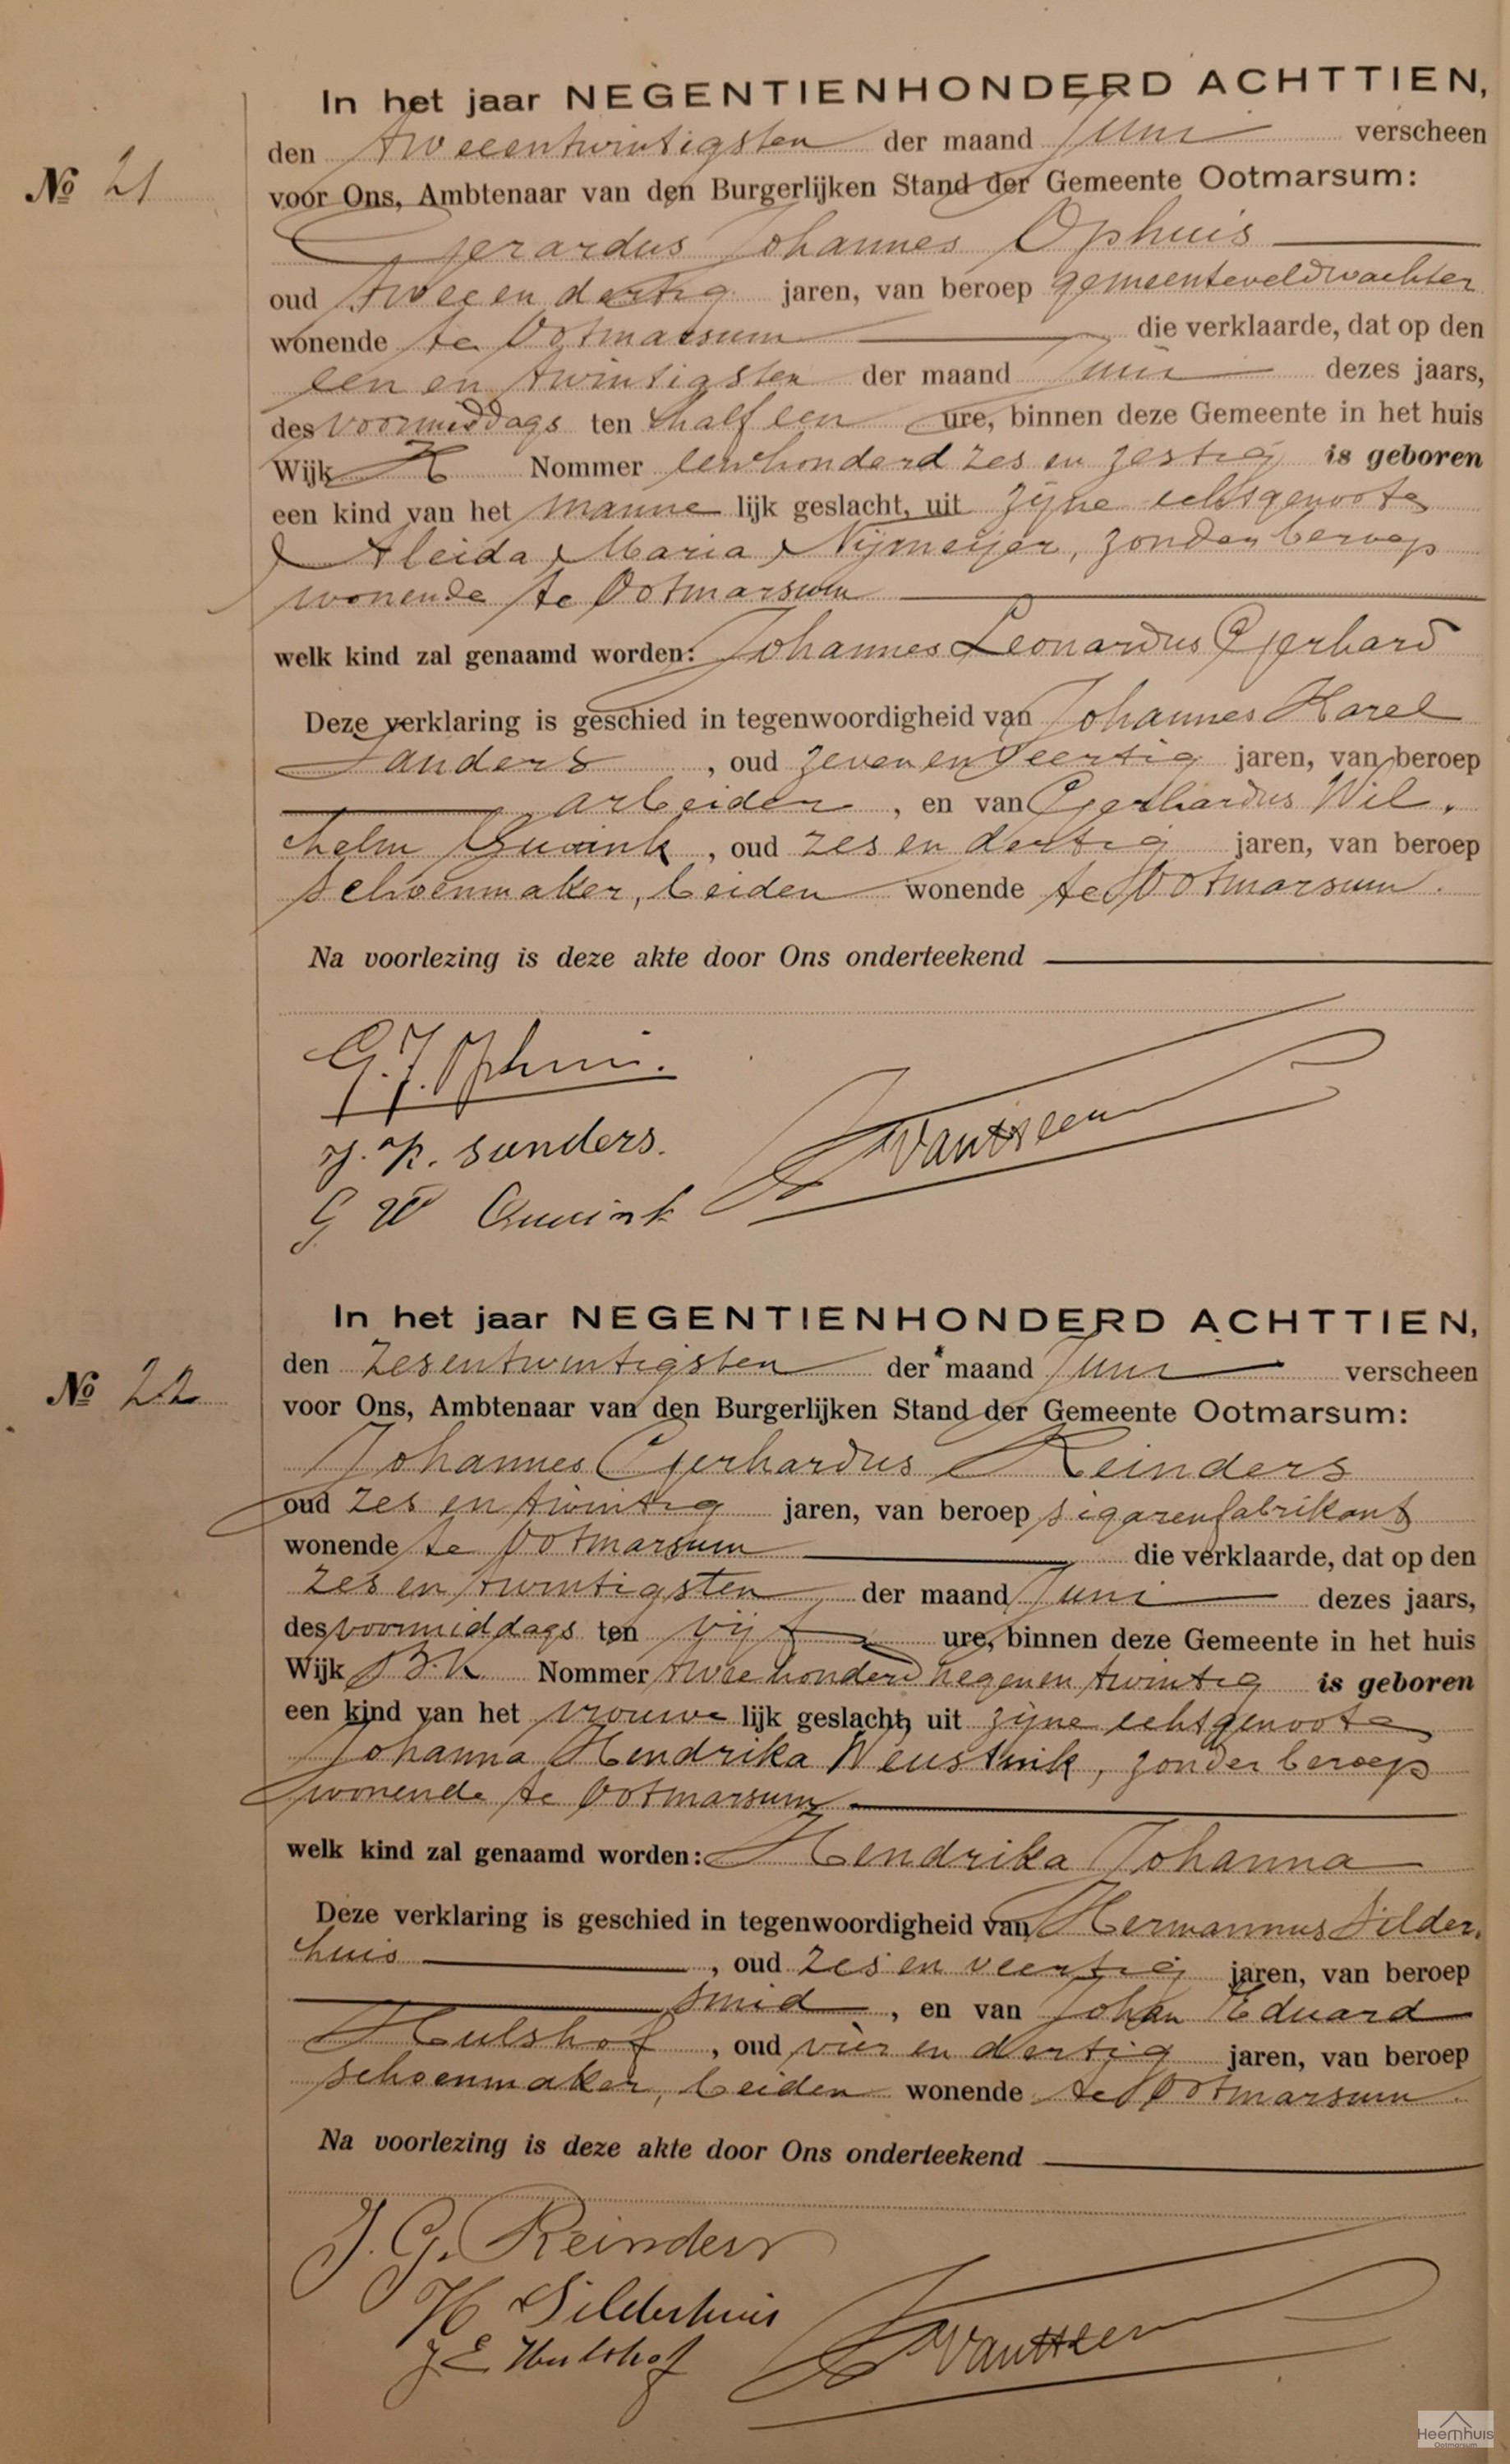 In het jaar NEGENTIENHONDERD ACHTTIEN,
den tweeentwintigsten der maand Juni verscheen
No 21
voor Ons, Ambtenaar van den Burgerlijken Stand der Gemeente Ootmarsum:
Gerardus Johannes Ophuis
oud twee en dertig jaren, van beroep gemeenteveldwachter
wonende te Ootmarsum die verklaarde, dat op den
een en twintigsten der maand Juni dezes jaars,
des voormiddags ten half een ure, binnen deze Gemeente in het huis
Wijk H Nommer eenhonderd zes en zestig is geboren
een kind van het manne lijk geslacht, uit zijne echtgenoote
Aleida Maria Nijmeijer, zonder beroep
wonende te Ootmarsum
welk kind zal genaamd worden: Johannes Leonardus Gerhard
Deze verklaring is geschied in tegenwoordigheid van Johannes Karel
Sanders, oud zeven en veertig jaren, van beroep
arbeider, en van Gerhardus Wil-
helm Gunnink, oud zes en dertig jaren, van beroep
schoenmaker, beiden wonende te Ootmarsum.
Na voorlezing is deze akte door Ons onderteekend
G.J. Ophuis.
J. K. Sanders.
G W
In het jaar NEGENTIENHONDERD ACHTTIEN,
den zesentwintigsten der maand Juni verscheen
No 22
voor Ons, Ambtenaar van den Burgerlijken Stand der Gemeente Ootmarsum:
Johannes Gerhardus Reinders
oud zes en twintig jaren, van beroep sigarenfabrikant
wonende te Ootmarsum die verklaarde, dat op den
zes en twintigsten der maand Juni dezes jaars,
des voormiddags ten vijf ure, binnen deze Gemeente in het huis
Wijk B.K. Nommer twee honderd negen en twintig is geboren
een kind van het vrouwe lijk geslacht, uit zijne echtgenoote
Johanna Hendrika Neustink, zonder beroep
wonende te Ootmarsum
welk kind zal genaamd worden: Hendrika Johanna
Deze verklaring is geschied in tegenwoordigheid van Hermannus Silder-
huis, oud zes en veertig jaren, van beroep
smid, en van Johan Eduard
Hulshof, oud vier en dertig jaren, van beroep
schoenmaker, beiden wonende te Ootmarsum.
Na voorlezing is deze akte door Ons onderteekend
J. G. Reinders
H Silderhuis
J E Hulshof
Heemhuis
Ootmarsum